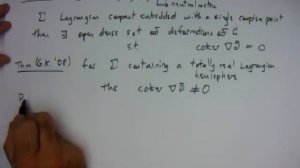 neutral metric
Σ Lagrangian compact embedded with a single complex point
then ∃ open dense set of deformations of Σ
s.t coker ∇ ∂̄ = 0
Thm (G.K. '08) for Σ containing a totally real Lagrangian
hemisphere
the coker ∇ ∂̄ ≠ 0